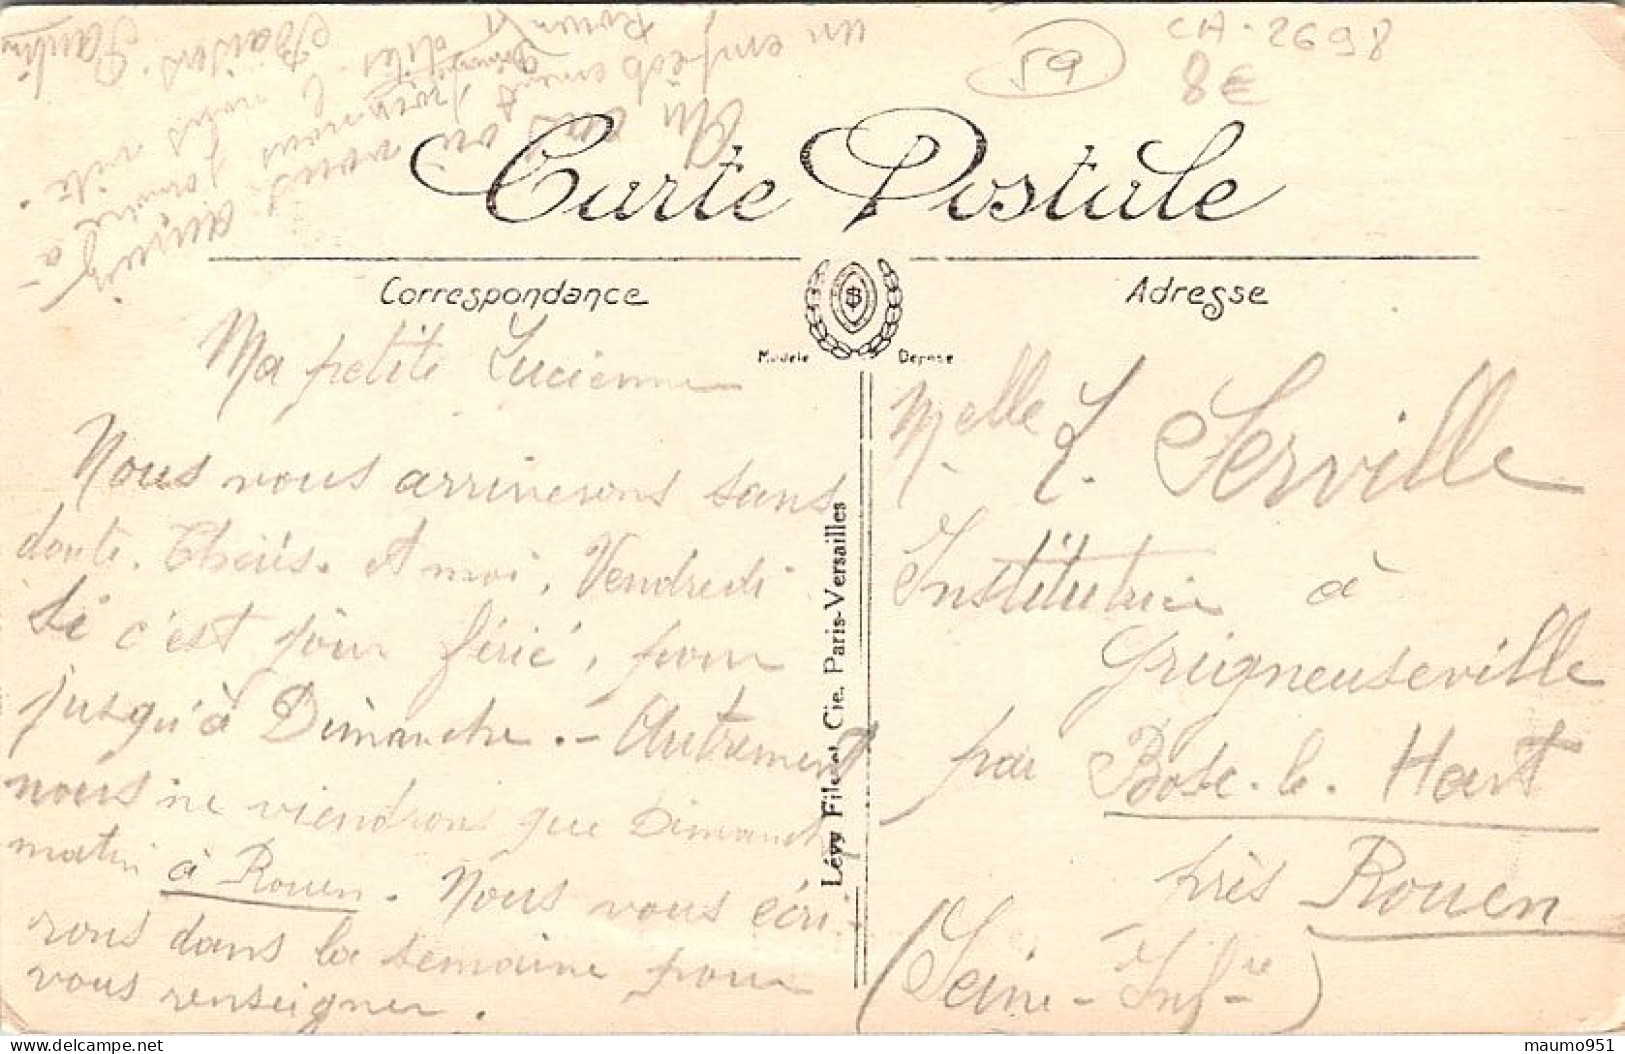 CA-2698
59
8€
Carte Postale
Correspondance
Adresse
Modèle Déposé
Lévy Fils et Cie, Paris-Versailles
Ma petite Lucienne
Nous vous arriverons sans
doute. et moi, Vendredi
si c'est jour férié, pour
jusqu'à Dimanche.- Autrement
nous ne viendrons que Dimanche
matin à Rouen. Nous vous écri-
rons dans la semaine pour
vous renseigner.
Au cas où vous auriez
un empêchement,
dites-le nous vite.
Baisers. 
Melle L. Serville
Institutrice à
Grigneuseville
par Bosc-le-Hart
près Rouen
(Seine-Infre)
maumo951